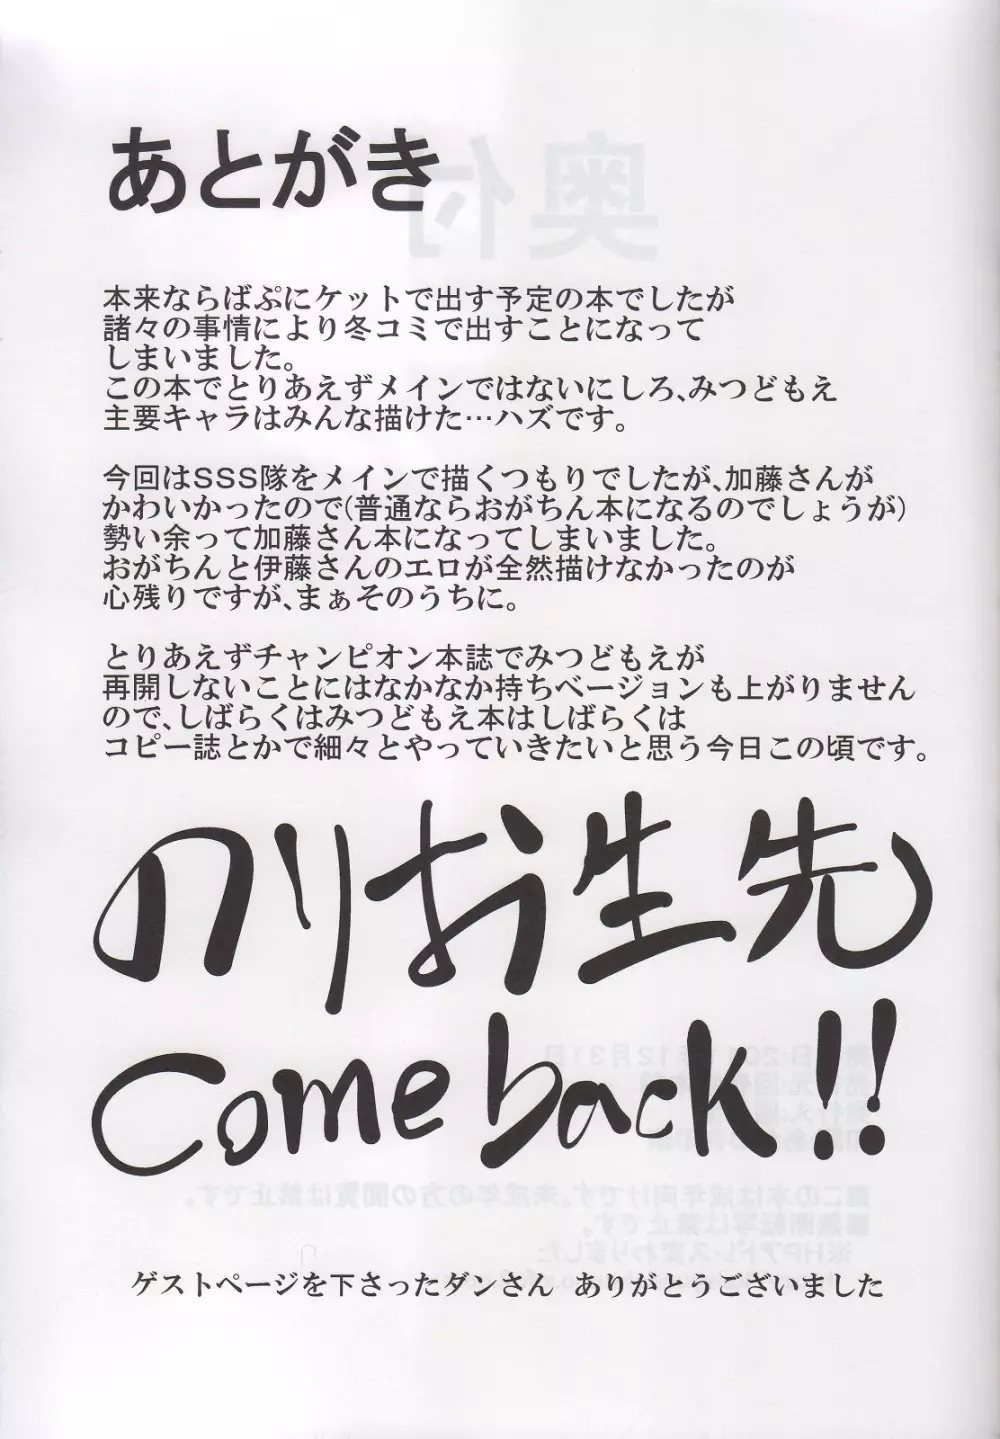 あとがき
本来ならばぷにケットで出す予定の本でしたが
諸々の事情により冬コミで出すことになって
しまいました。
この本でとりあえずメインではないにしろ、みつどもえ
主要キャラはみんな描けた…ハズです。
今回はSSS隊をメインで描くつもりでしたが、加藤さんが
かわいかったので(普通ならおがちん本になるのでしょうが)
勢い余って加藤さん本になってしまいました。
おがちんと伊藤さんのエロが全然描けなかったのが
心残りですが、まぁそのうちに。
とりあえずチャンピオン本誌でみつどもえが
再開しないことにはなかなか持ちベージョンも上がりません
ので、しばらくはみつどもえ本はしばらくは
コピー誌とかで細々とやっていきたいと思う今日この頃です。
のりお生先
Come back!!
ゲストページを下さったダンさん ありがとうございました